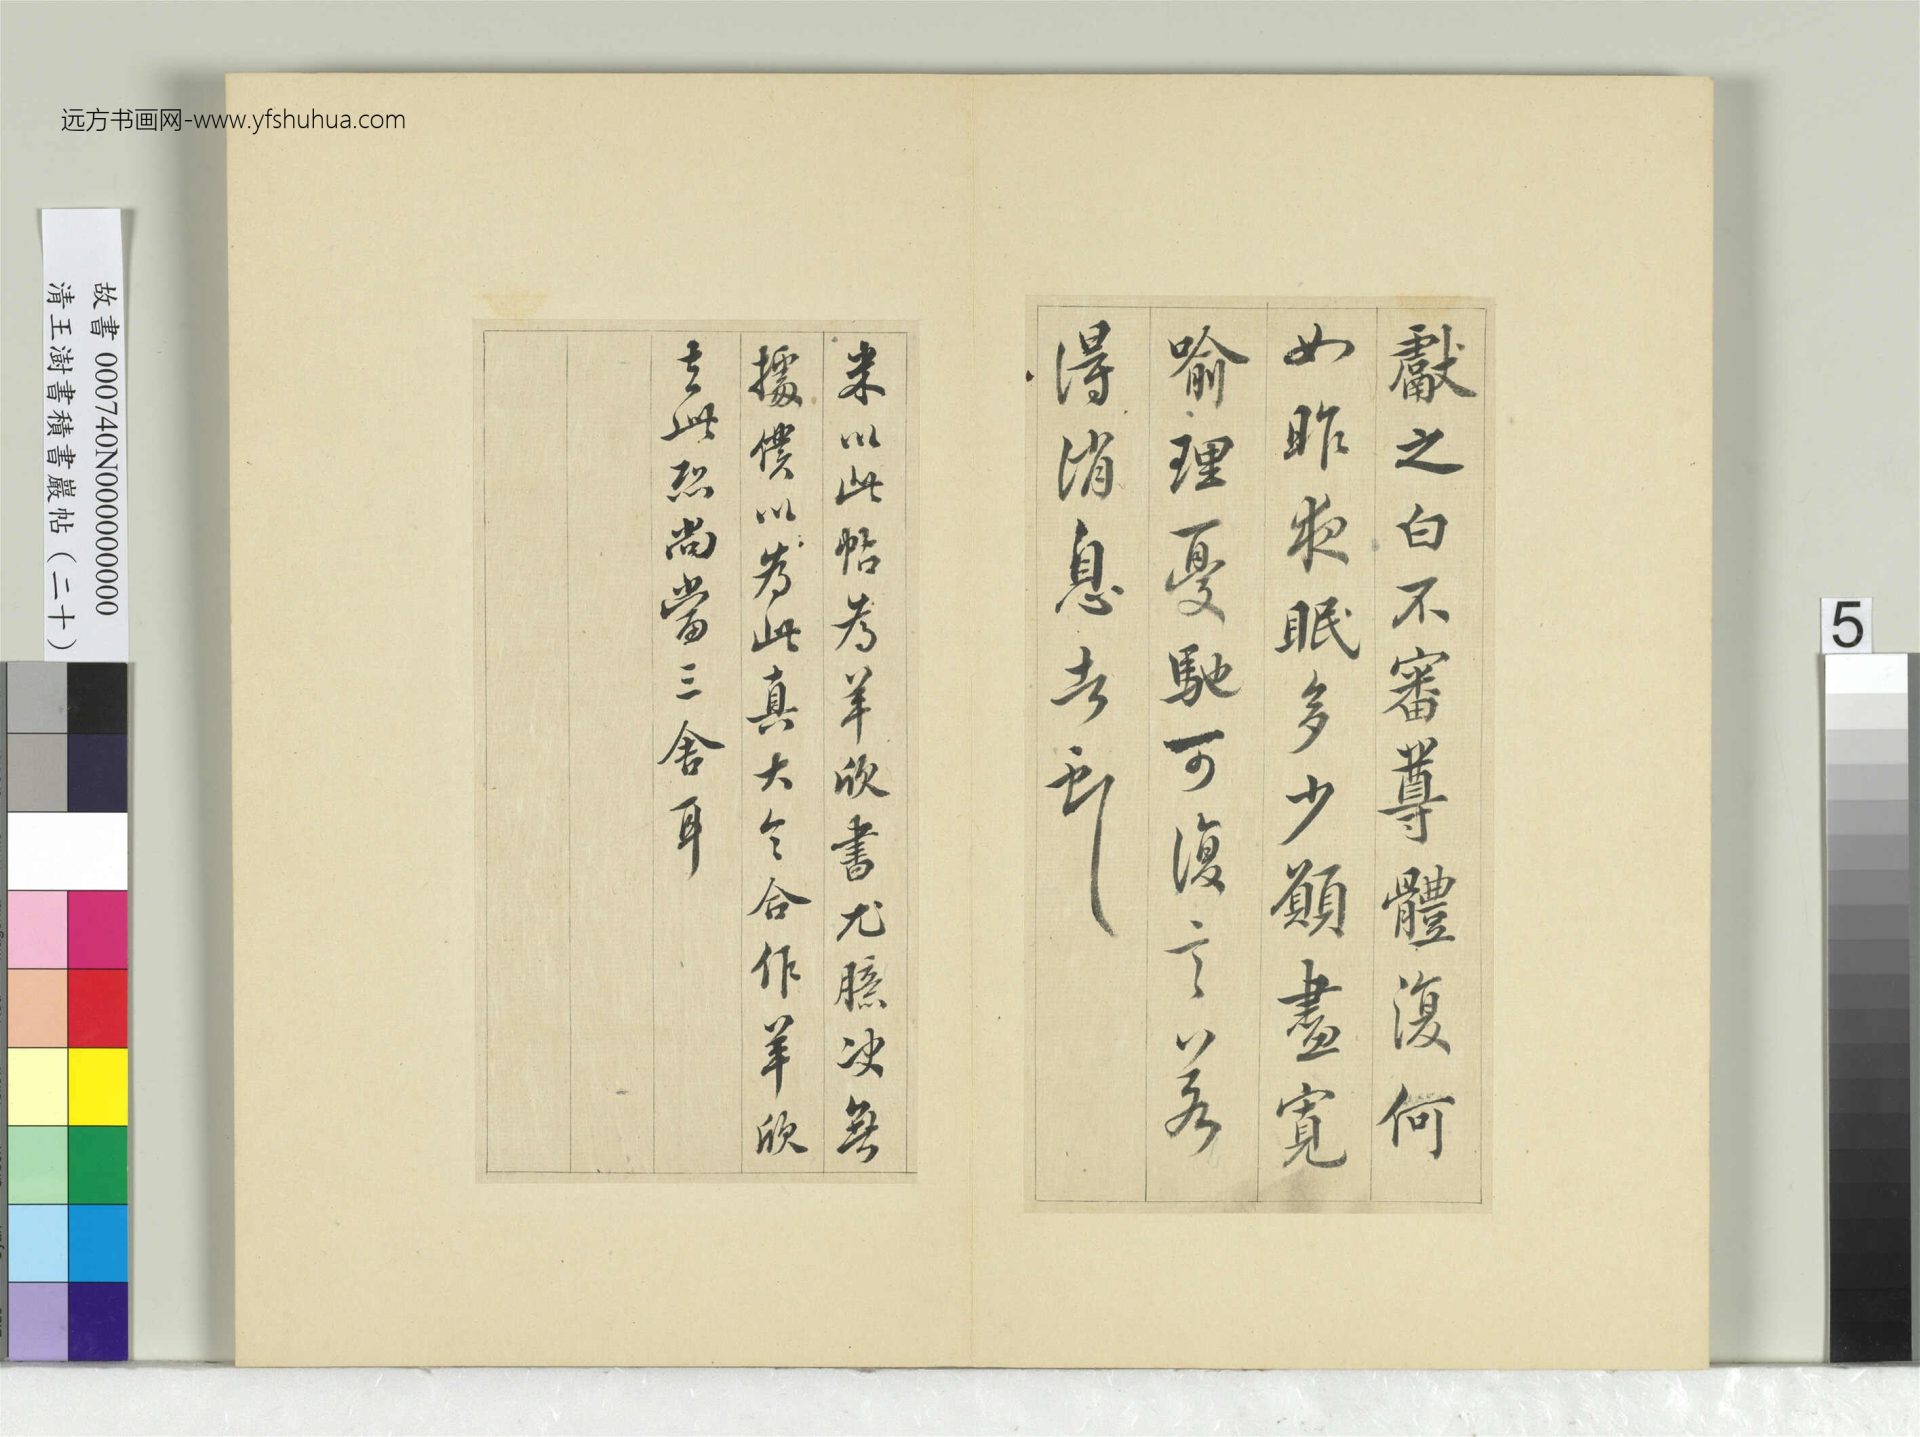 远方书画网-www.yfshuhua.com
故書 000740N000000000
清王澍書積書巖帖（二十）
5
獻之白不審尊體復何
如昨夜眠多少願盡寬
喻理憂馳可復言以若
得消息告
米以此帖為羊欣書尤臆决無
據僕以為此真大令合作羊欣
去此恐尚當三舍耳